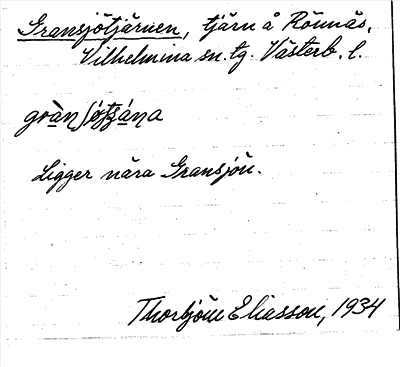 Gransjötjärnen, tjärn å Rönnäs,
Vilhelmina sn. tg. Västerb. l.
Ligger nära Gransjön.
Thorbjörn Eliasson, 1934